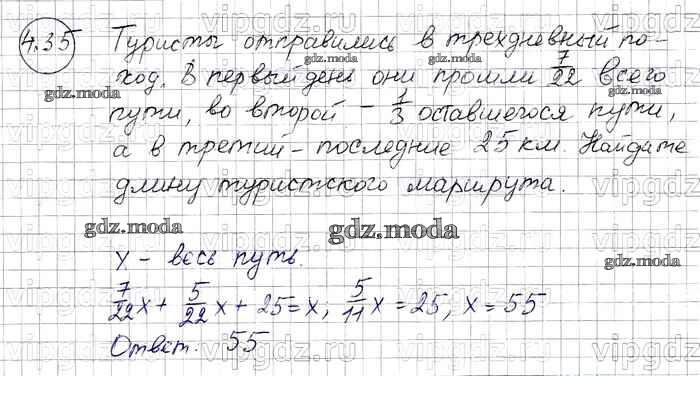 4.35 Туристы отправились в трехдневный по-
ход. В первый день они прошли 7/22 всего
пути, во второй – 1/3 оставшегося пути,
а в третий – последние 25 км. Найдите
длину туристского маршрута.
x – весь путь.
7/22 x + 5/22 x + 25 = x; 5/11 x = 25, x = 55
Ответ: 55
gdz.moda
gdz.moda
gdz.moda
gdz.moda
gdz.moda
gdz.moda
gdz.moda
vipgdz.ru